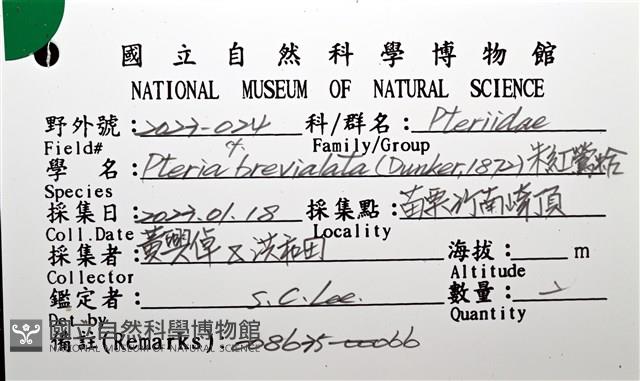 國立自然科學博物館
NATIONAL MUSEUM OF NATURAL SCIENCE
野外號：2023-024 科/群名：Pteriidae
Field# Family/Group
學 名：Pteria cf. brevialata (Dunker, 1872) 朱紅鶯蛤
Species
採集日：2023.01.18 採集點：苗栗竹南崎頂
Coll.Date Locality
採集者：黃興倬 & 洪和田 海拔： m
Collector Altitude
鑑定者： S.C. Lee. 數量：
Det.by Quantity
國立自然科學博物館
NATIONAL MUSEUM OF NATURAL SCIENCE
備註(Remarks)：008635-00066